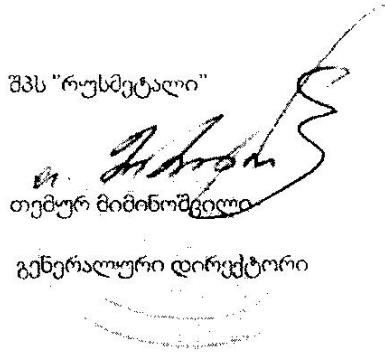 შპს "რუსმეტალი"
თემურ მიმინოშვილი
გენერალური დირექტორი